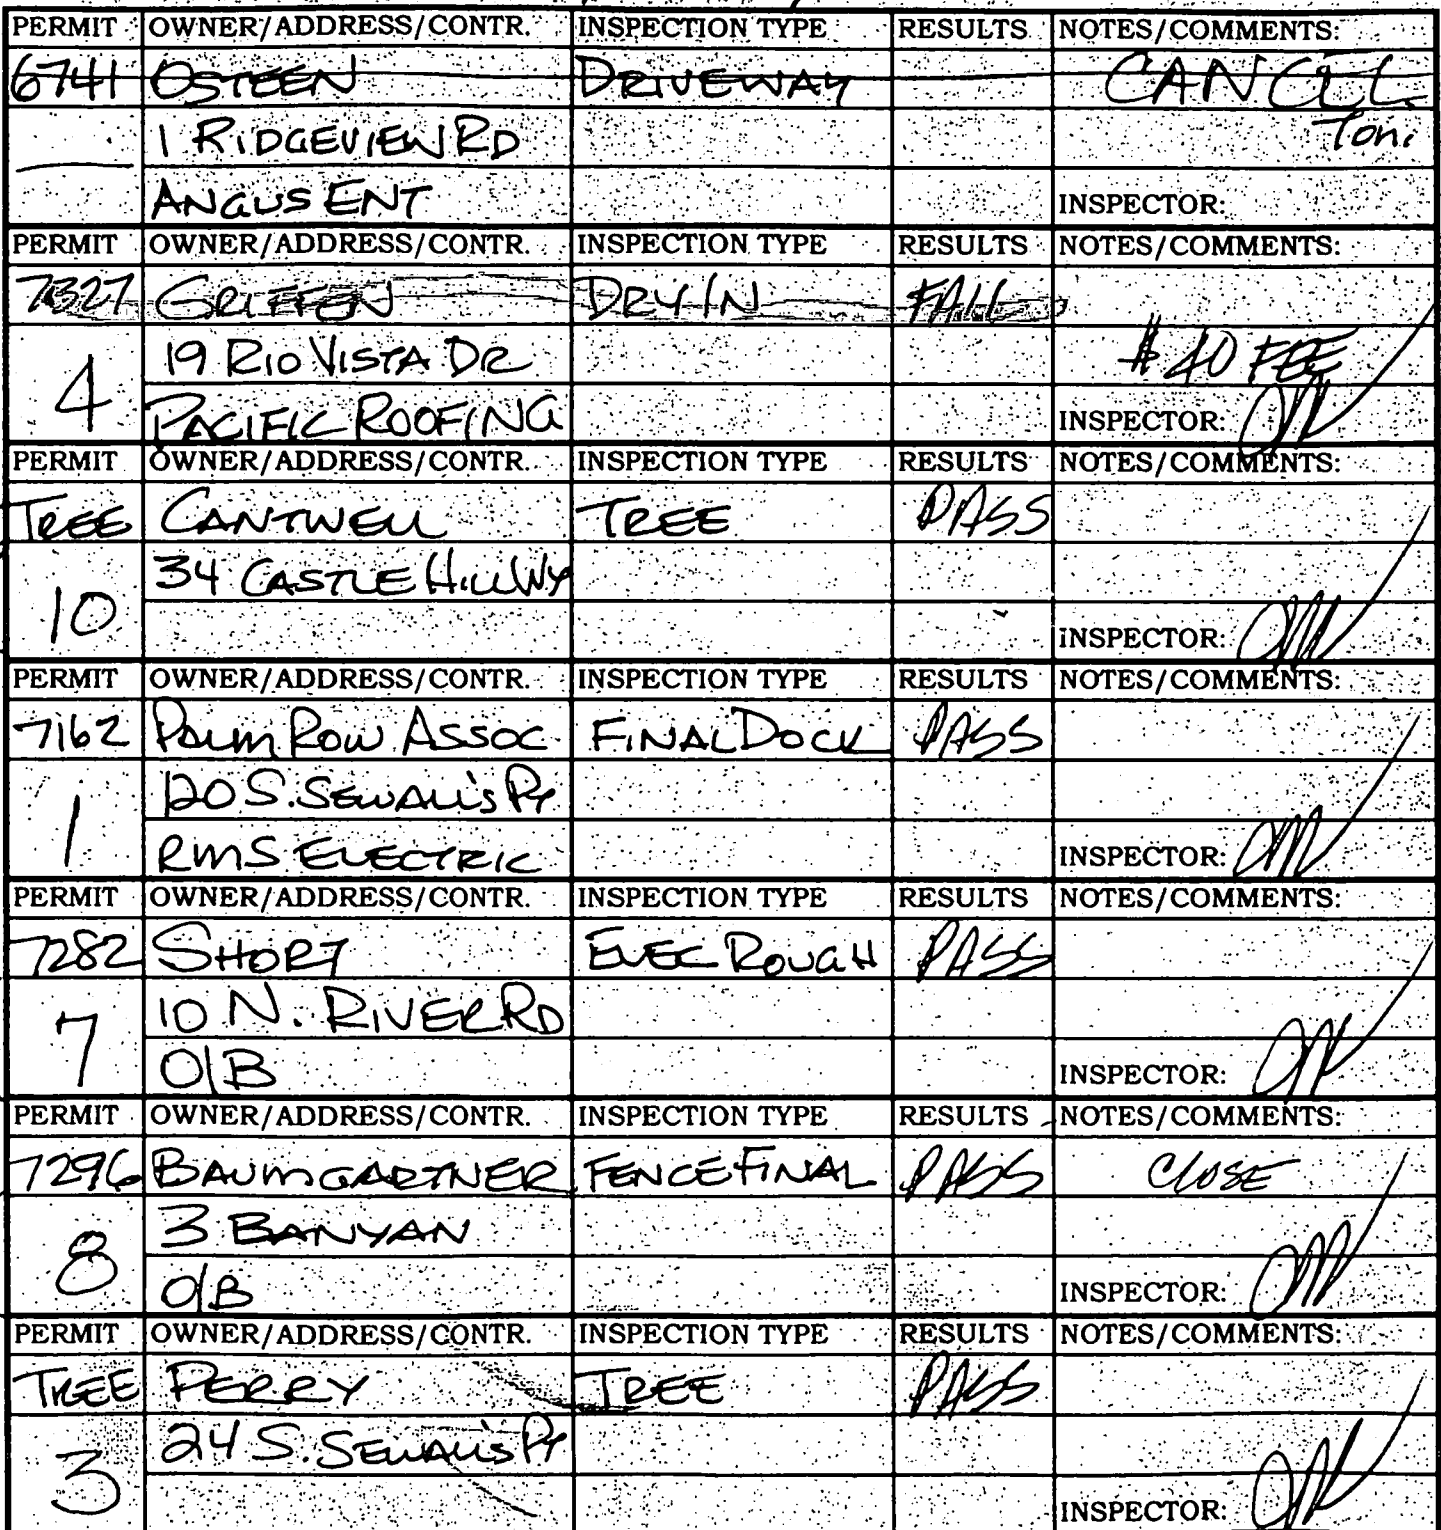 PERMIT OWNER/ADDRESS/CONTR. INSPECTION TYPE RESULTS NOTES/COMMENTS:
6741 OSTEEN DRIVEWAY CANCEL
1 RIDGEVIEW RD Toni
ANGUS ENT INSPECTOR:
PERMIT OWNER/ADDRESS/CONTR. INSPECTION TYPE RESULTS NOTES/COMMENTS:
7327 GRIFFEN DRY IN FAIL
4 19 RIO VISTA DR $40 FEE
PACIFIC ROOFING INSPECTOR:
PERMIT OWNER/ADDRESS/CONTR. INSPECTION TYPE RESULTS NOTES/COMMENTS:
TREE CANTWELL TREE PASS
10 34 CASTLE HILL WY
INSPECTOR:
PERMIT OWNER/ADDRESS/CONTR. INSPECTION TYPE RESULTS NOTES/COMMENTS:
7162 PALM ROW ASSOC FINAL DOCK PASS
1 120 S. SEWALL'S PT
RMS ELECTRIC INSPECTOR:
PERMIT OWNER/ADDRESS/CONTR. INSPECTION TYPE RESULTS NOTES/COMMENTS:
7282 SHORT ELEC ROUGH PASS
7 10 N. RIVER RD
O/B INSPECTOR:
PERMIT OWNER/ADDRESS/CONTR. INSPECTION TYPE RESULTS NOTES/COMMENTS:
7296 BAUMGARTNER FENCE FINAL PASS CLOSE
8 3 BANYAN
O/B INSPECTOR:
PERMIT OWNER/ADDRESS/CONTR. INSPECTION TYPE RESULTS NOTES/COMMENTS:
TREE PERRY TREE PASS
3 24 S. SEWALL'S PT
INSPECTOR: